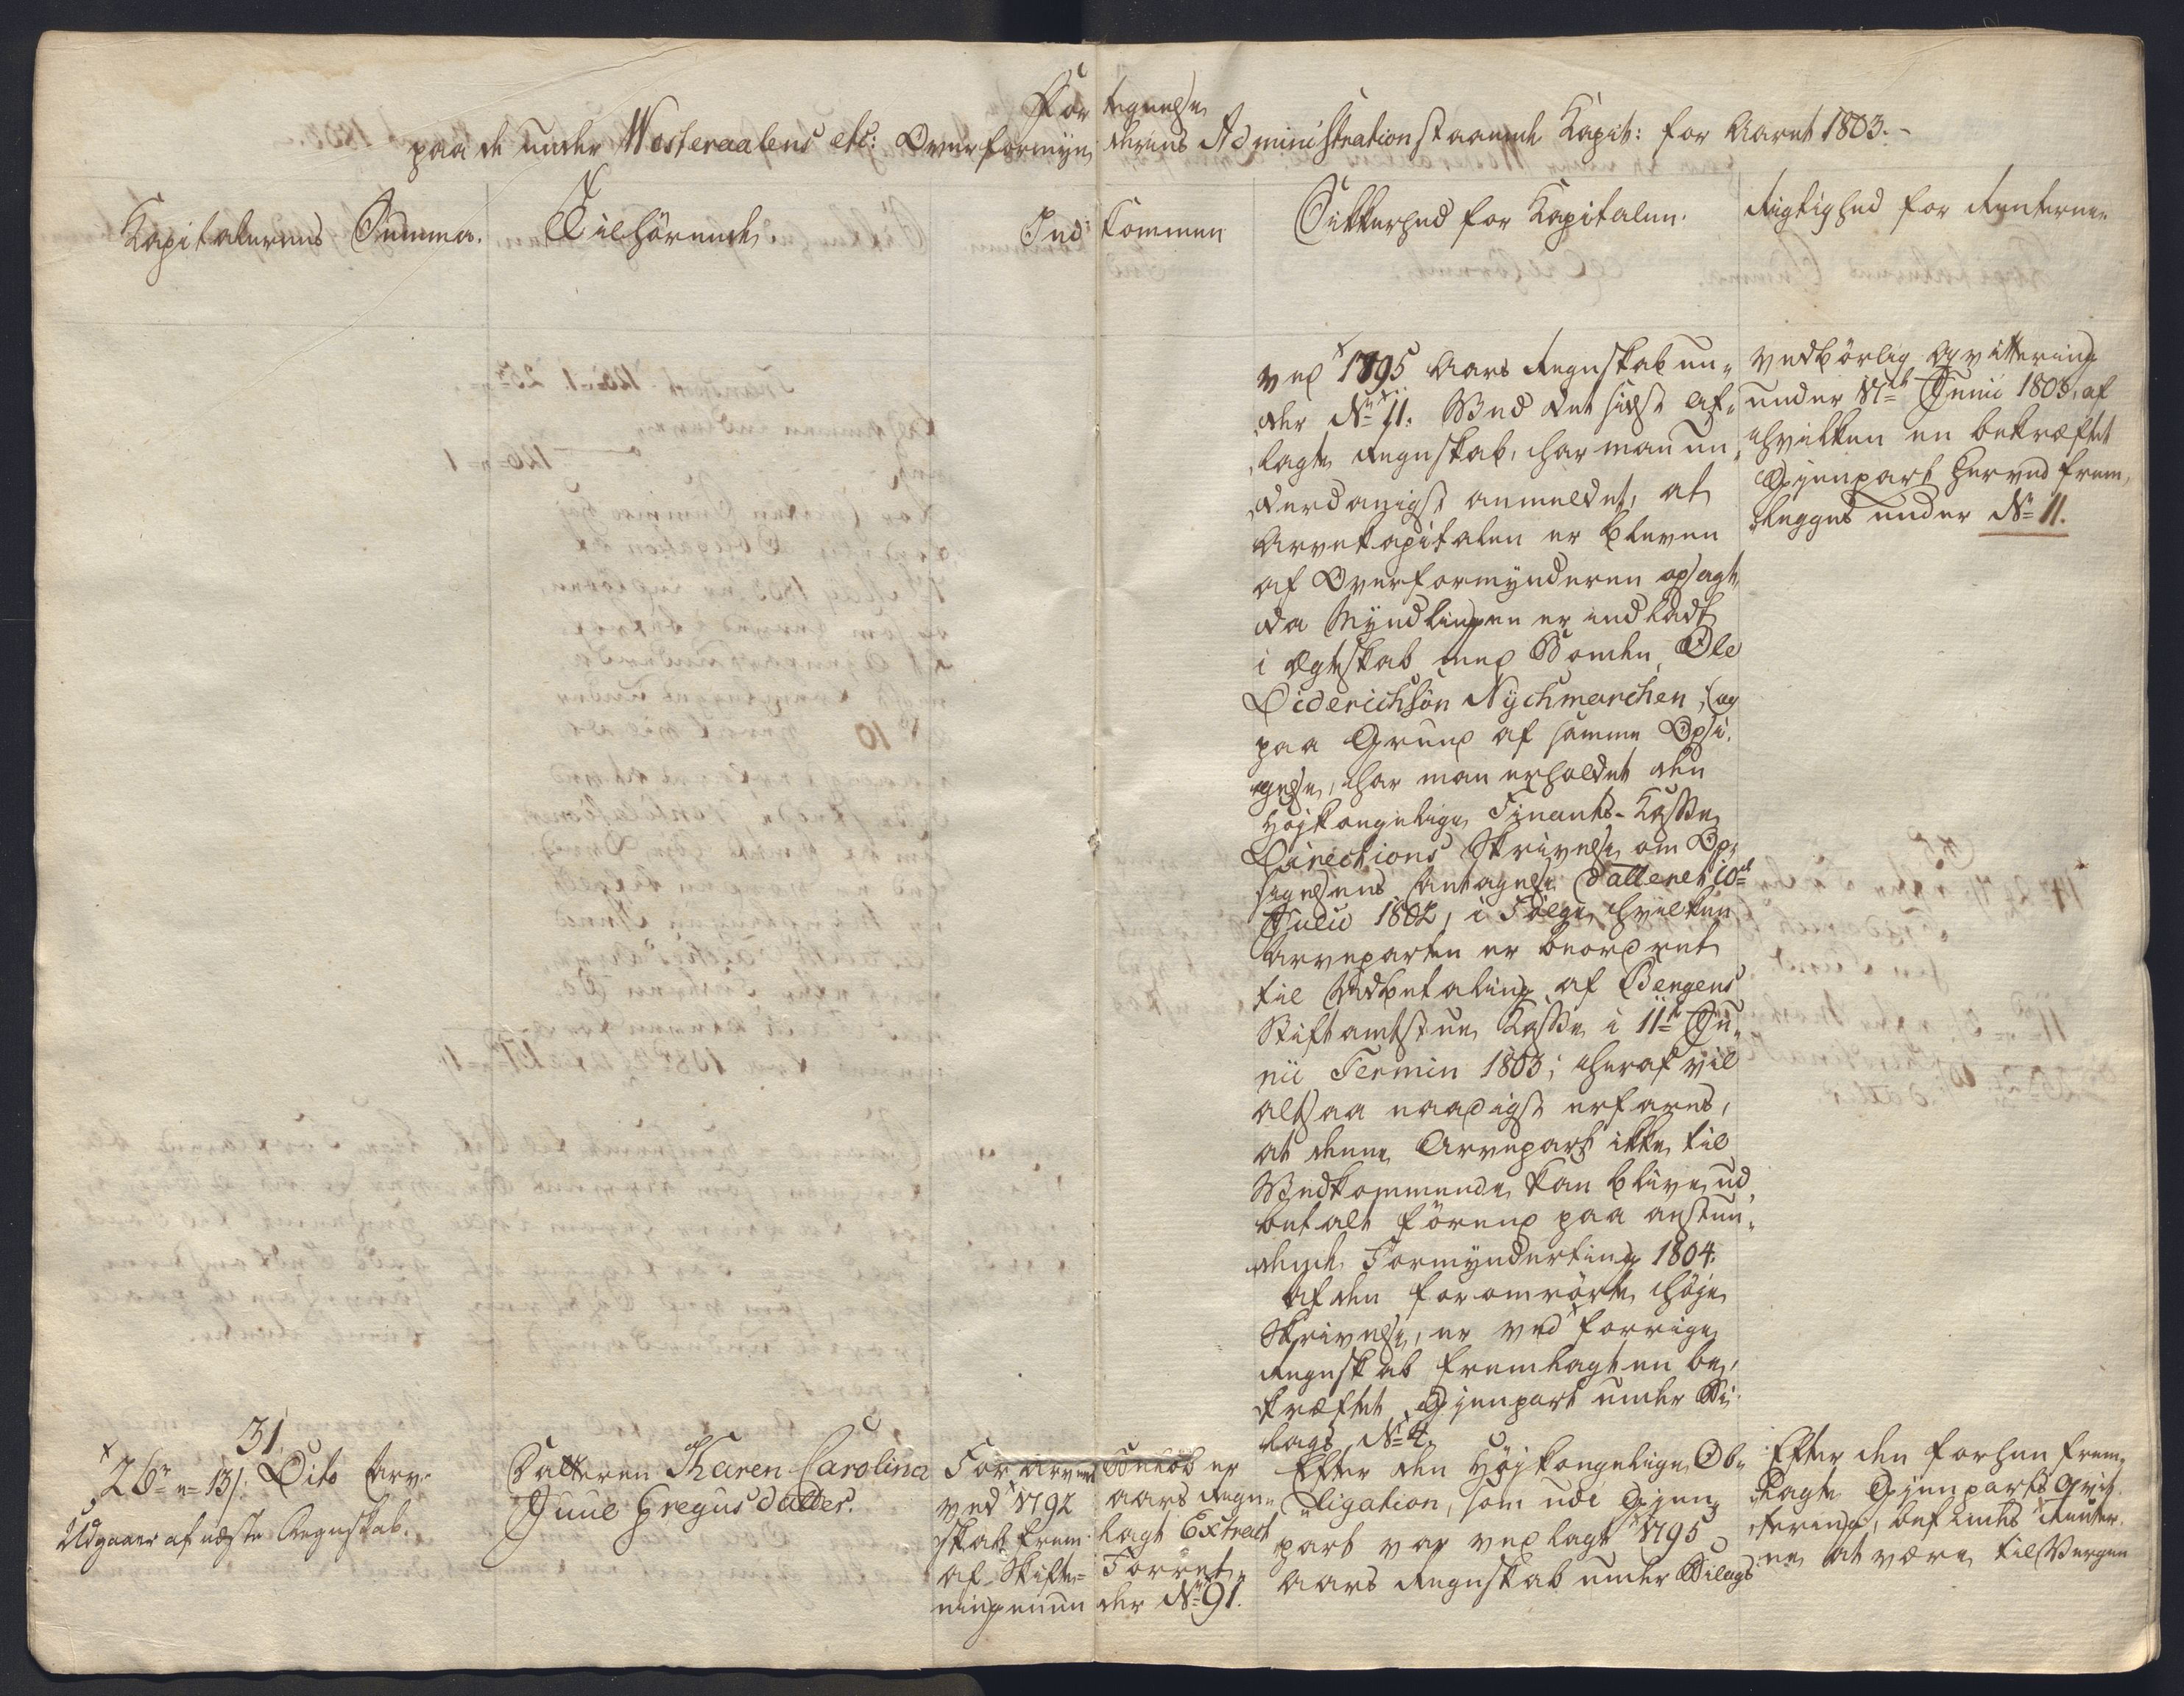 Fortegnelse
paa de under Westeraalens etc: Overformynderies Administration staaende Kapit: for Aaret 1803.-
Kapitalernes Summa.
Tilhörende
Indkommen
Sikkerhed for Kapitalen.
Rigtighed for Renterne
ved 1795 Aars Regnskab un-
der No 11. Med det sidst af-
lagte Regnskab, har man un-
derdanigst anmeldet, at
Arvekapitalen er bleven
af Overformynderen opsagt,
da Myndlingen er indladt
i Ægteskab med Bonden Ole
Diderichsön Nychmarchen, og
paa Grund af samme Opsi-
gelse, har man erholdet den
Höjkongelige Finants-Kasse
Directions Skrivelse om Op-
sigelsens Antagelse datteret 10de
Julii 1802, i Fölge hvilken
Arveparten er beordret
til Udbetaling af Bergens
Stiftamtstue Kasse i 11te Ju-
nii Termin 1803; heraf vil
altsaa naadigst erfares,
at denne Arvepart ikke til
Vedkommende kan blive ud-
betalt förend paa anstun-
dende Formynderting 1804.
Af den foromrörte höje
Skrivelse, er ved forrige
Regnskab fremlagt en be-
kræftet Gjenpart under Bi-
lags No 4.
vedbörlig Qvittering
under 17de Junii 1803, af
hvilken en bekræftet
Gjenpart herved frem-
lægges under No 11.
31.
26rd " 13s. Dito Arv.
Udgaaer af næste Regnskab.
Datteren Karen Carolina
Juul Gregusdatter.
For Arvens Belöb er
ved 1792 Aars Regn-
skab frem lagt Extract
af Skifte- Forret-
ningen un der No 91.
Efter den Höjkongelige Ob-
ligation, som udi Gjen-
part var vedlagt 1795
Aars Regnskab under Bilags
Efter den forhen frem-
lagte Gjenparts Qvit-
tering, befindes Renter-
ne at være til Vergen